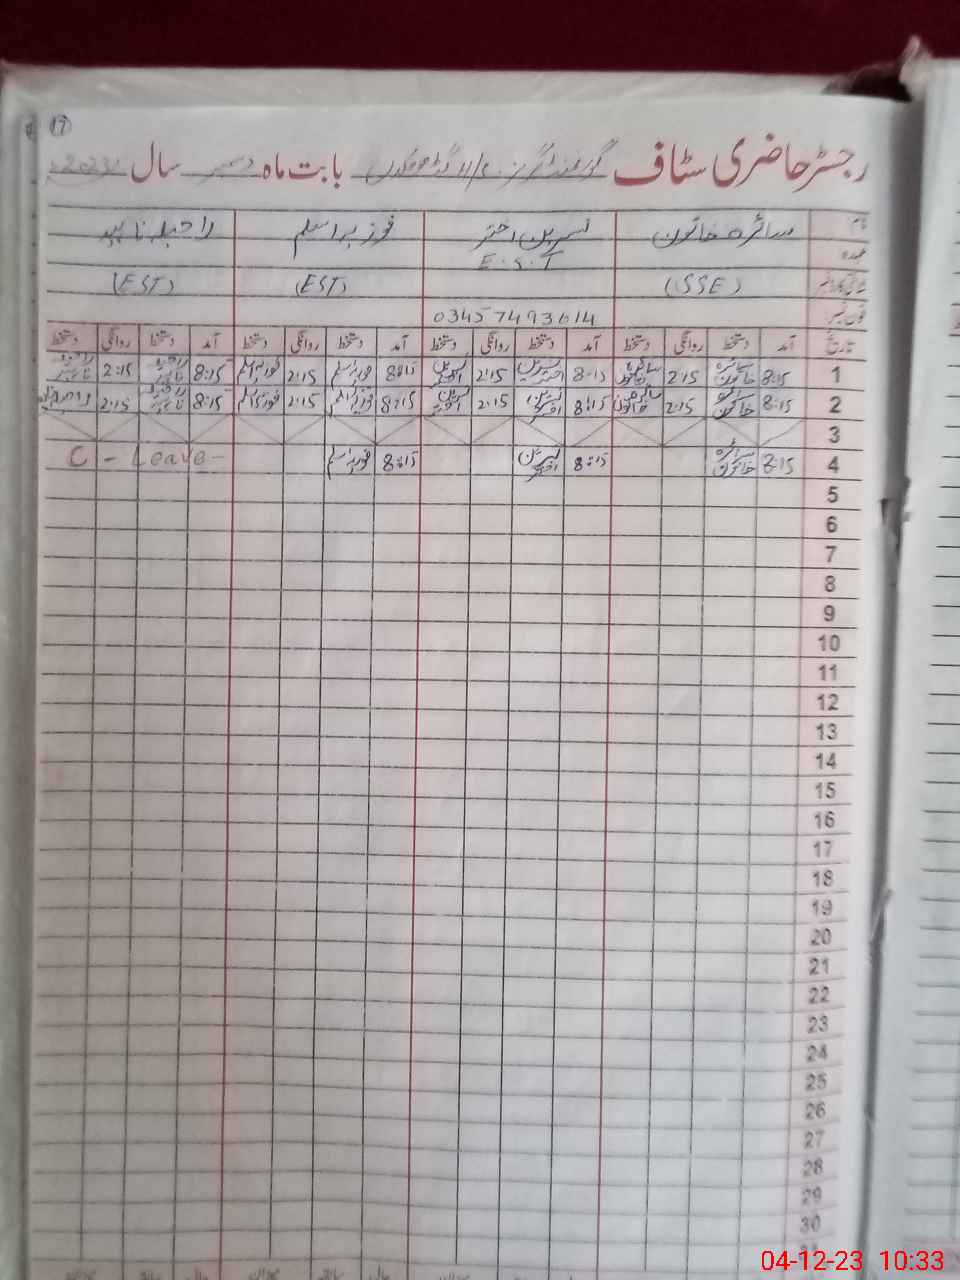 19
رجسٹر حاضری سٹاف گورنمنٹ گرلز بابت ماہ دسمبر سال 2023ء
نام سائرہ خاتون نسرین اختر فوزیہ اسلم راحیلہ ناہید
عہدہ E.S.T
(SSE) (EST) (EST)
فون نمبر 03457493614
تاریخ آمد دستخط روانگی دستخط آمد دستخط روانگی دستخط آمد دستخط روانگی دستخط آمد دستخط روانگی دستخط
1 8:15 سائرہ خاتون 2:15 سائرہ خاتون 8:15 نسرین اختر 2:15 نسرین اختر 8:15 فوزیہ اسلم 2:15 فوزیہ اسلم 8:15 راحیلہ ناہید 2:15 راحیلہ ناہید
2 8:15 سائرہ خاتون 2:15 سائرہ خاتون 8:15 نسرین اختر 2:15 نسرین اختر 8:15 فوزیہ اسلم 2:15 فوزیہ اسلم 8:15 راحیلہ ناہید 2:15
3
4 8:15 سائرہ خاتون 8:15 نسرین اختر 8:15 فوزیہ اسلم C - Leave -
5
6
7
8
9
10
11
12
13
14
15
16
17
18
19
20
21
22
23
24
25
26
27
28
29
30
04-12-23 10:33